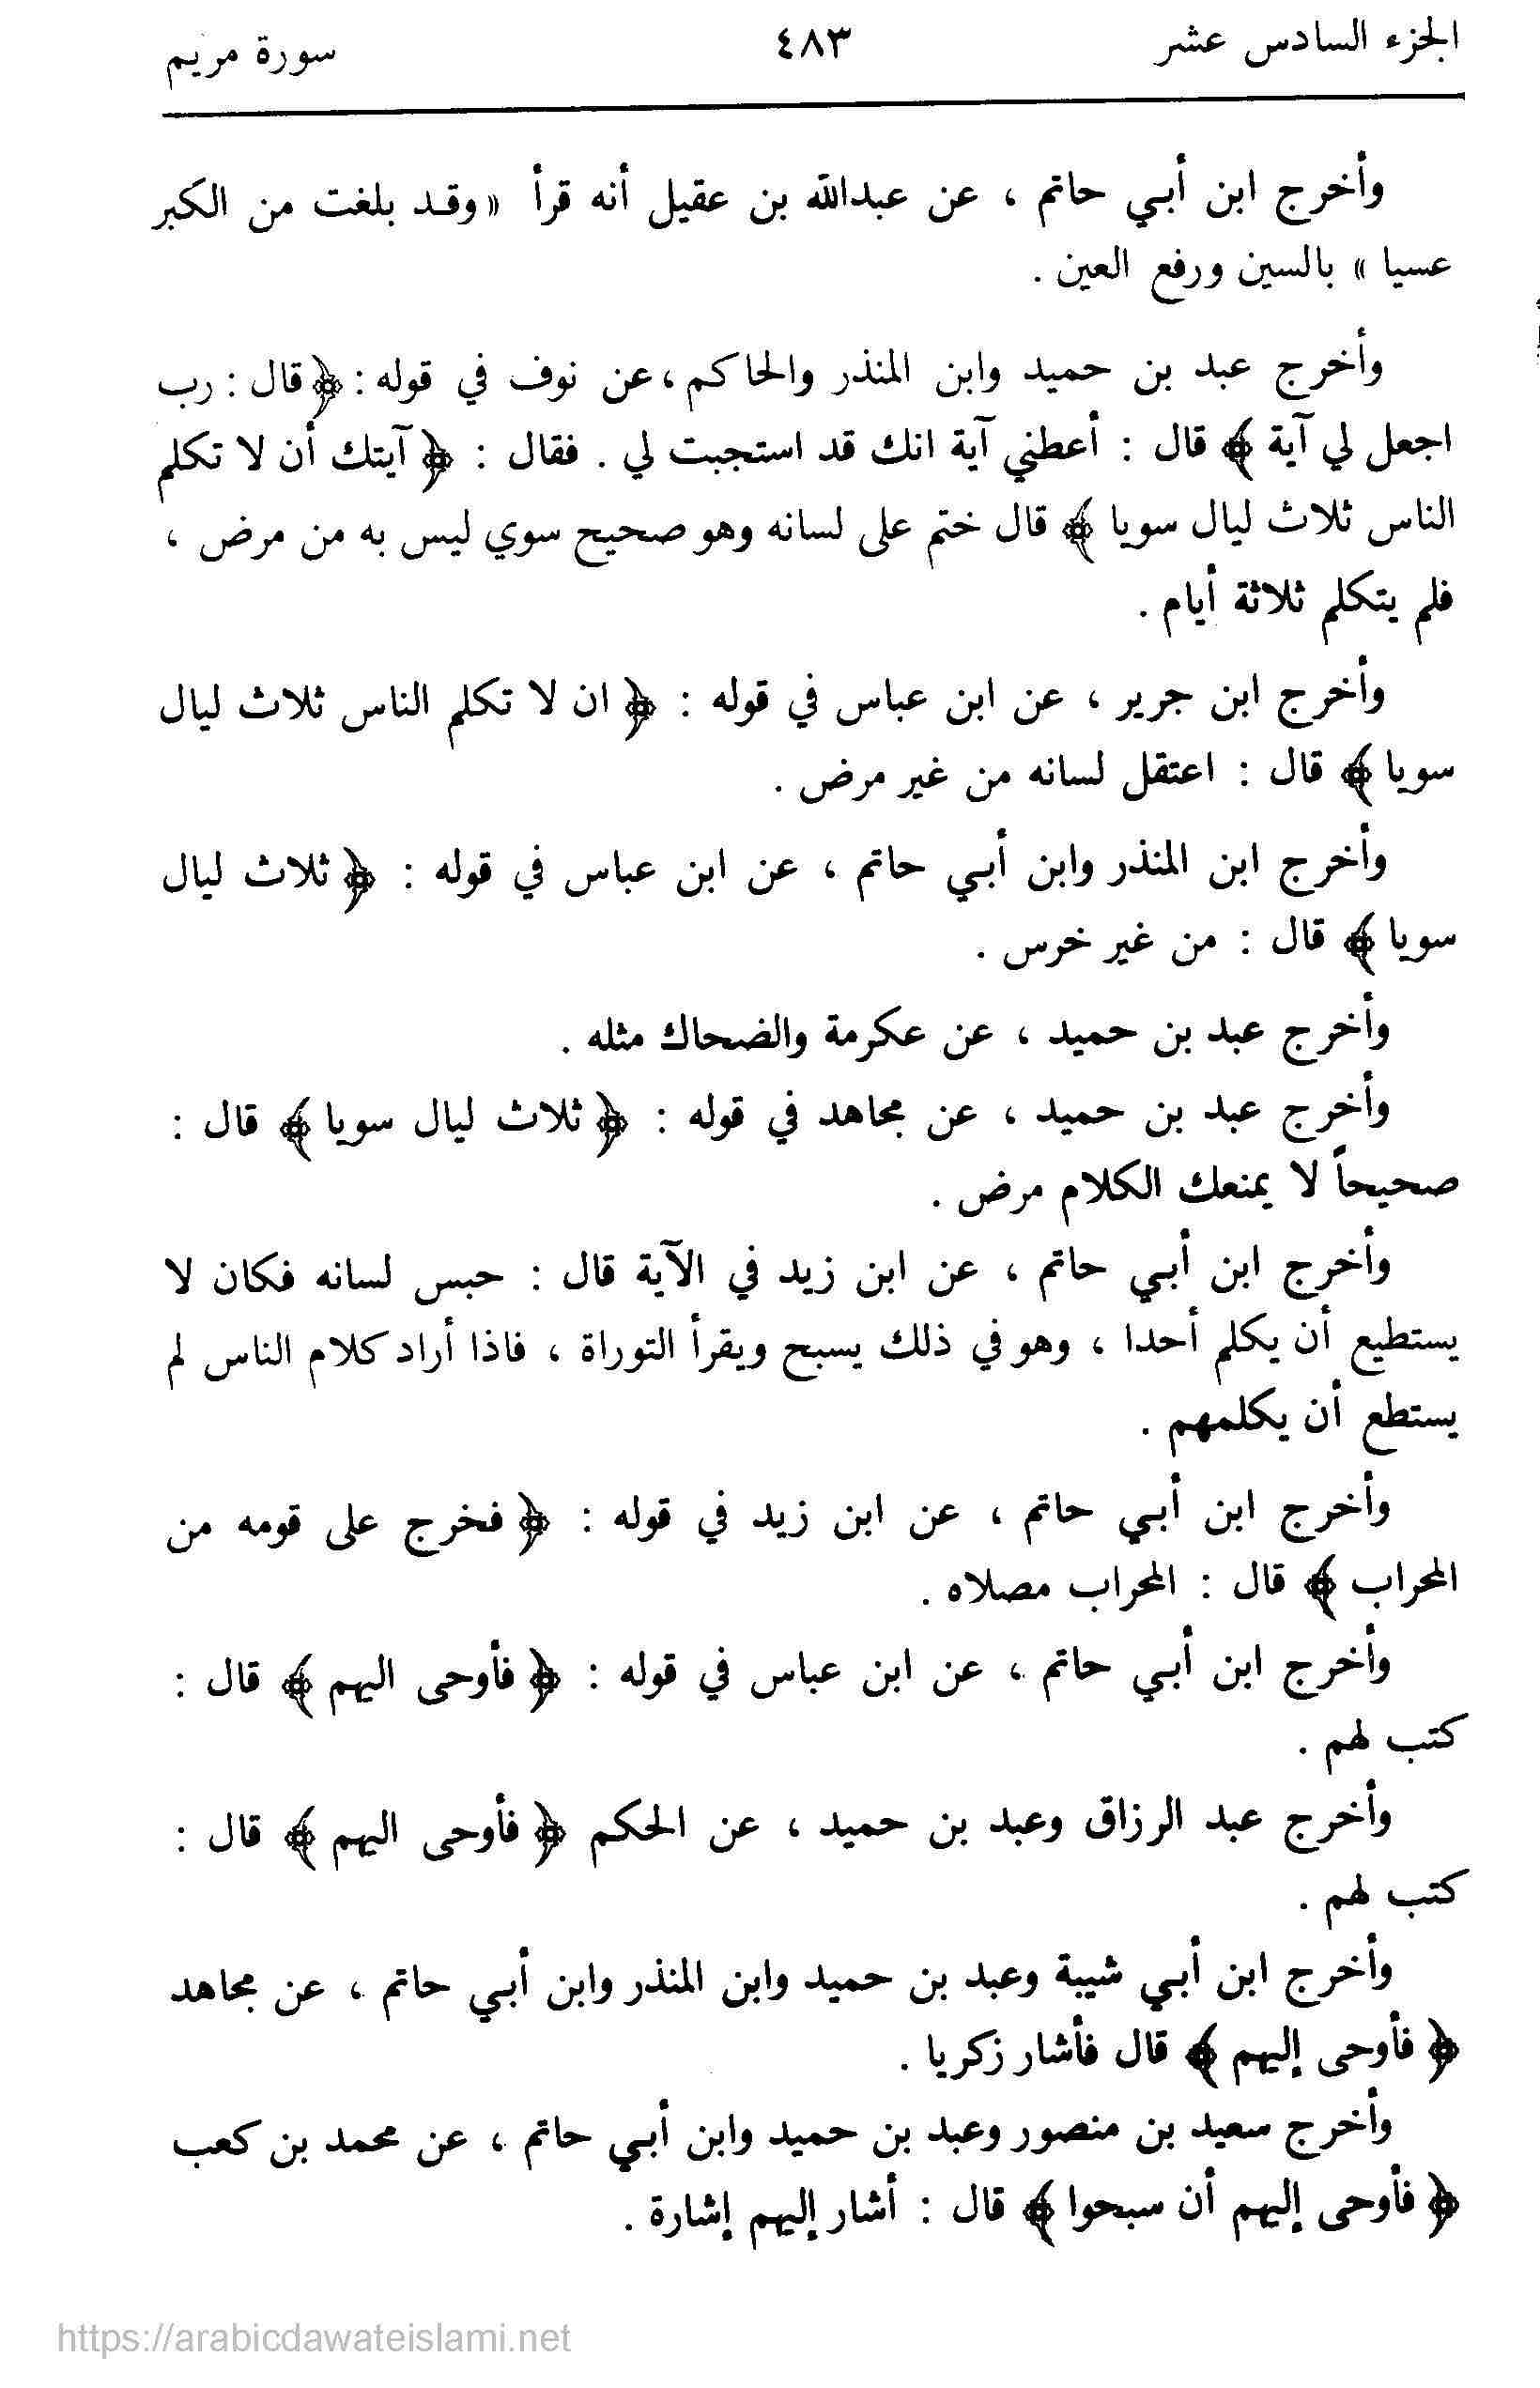 الجزء السادس عشر ٤٨٣ سورة مريم
وأخرج ابن أبي حاتم ، عن عبدالله بن عقيل أنه قرأ « وقد بلغت من الكبر
عسيا » بالسين ورفع العين .
وأخرج عبد بن حميد وابن المنذر والحاكم ، عن نوف في قوله : ﴿ قال : رب
اجعل لي آية ﴾ قال : أعطني آية انك قد استجبت لي . فقال : ﴿ آيتك أن لا تكلم
الناس ثلاث ليال سويا ﴾ قال ختم على لسانه وهو صحيح سوي ليس به من مرض ،
فلم يتكلم ثلاثة أيام .
وأخرج ابن جرير ، عن ابن عباس في قوله : ﴿ ان لا تكلم الناس ثلاث ليال
سويا ﴾ قال : اعتقل لسانه من غير مرض .
وأخرج ابن المنذر وابن أبي حاتم ، عن ابن عباس في قوله : ﴿ ثلاث ليال
سويا ﴾ قال : من غير خرس .
وأخرج عبد بن حميد ، عن عكرمة والضحاك مثله .
وأخرج عبد بن حميد ، عن مجاهد في قوله : ﴿ ثلاث ليال سويا ﴾ قال :
صحيحاً لا يمنعك الكلام مرض .
وأخرج ابن أبي حاتم ، عن ابن زيد في الآية قال : حبس لسانه فكان لا
يستطيع أن يكلم أحدا ، وهو في ذلك يسبح ويقرأ التوراة ، فاذا أراد كلام الناس لم
يستطع أن يكلمهم .
وأخرج ابن أبي حاتم ، عن ابن زيد في قوله : ﴿ فخرج على قومه من
المحراب ﴾ قال : المحراب مصلاه .
وأخرج ابن أبي حاتم ، عن ابن عباس في قوله : ﴿ فأوحى اليهم ﴾ قال :
كتب لهم .
وأخرج عبد الرزاق وعبد بن حميد ، عن الحكم ﴿ فأوحى اليهم ﴾ قال :
كتب لهم .
وأخرج ابن أبي شيبة وعبد بن حميد وابن المنذر وابن أبي حاتم ، عن مجاهد
﴿ فأوحى إليهم ﴾ قال فأشار زكريا .
وأخرج سعيد بن منصور وعبد بن حميد وابن أبي حاتم ، عن محمد بن كعب
﴿ فأوحى إليهم أن سبحوا ﴾ قال : أشار إليهم إشارة .
https://arabicdawateislami.net